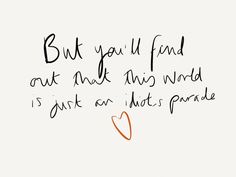 But you'll find
out that this world
is just an idiots parade